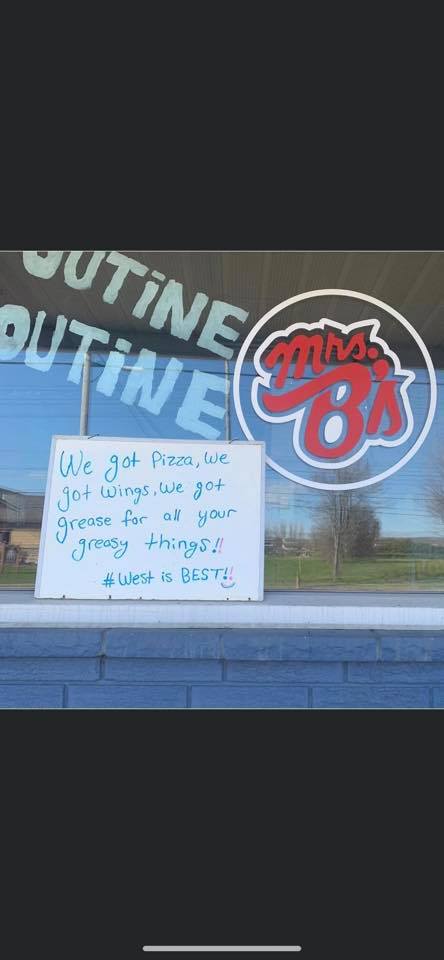 OUTINE
OUTINE
mrs.
B's
We got Pizza, We
got wings, We got
grease for all your
greasy things!!
#West is BEST!!